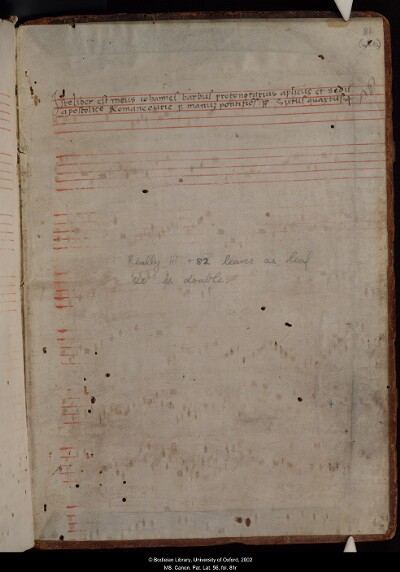 81
Iste liber est meus iohannes barbus protonotarius aplicus et sedis
apostolice Romane
Sixtus quartus
Really iii + 82 leaves as leaf
is double.
© Bodleian Library, University of Oxford, 2002
MS. Canon. Pat. Lat. 56, fol. 81r